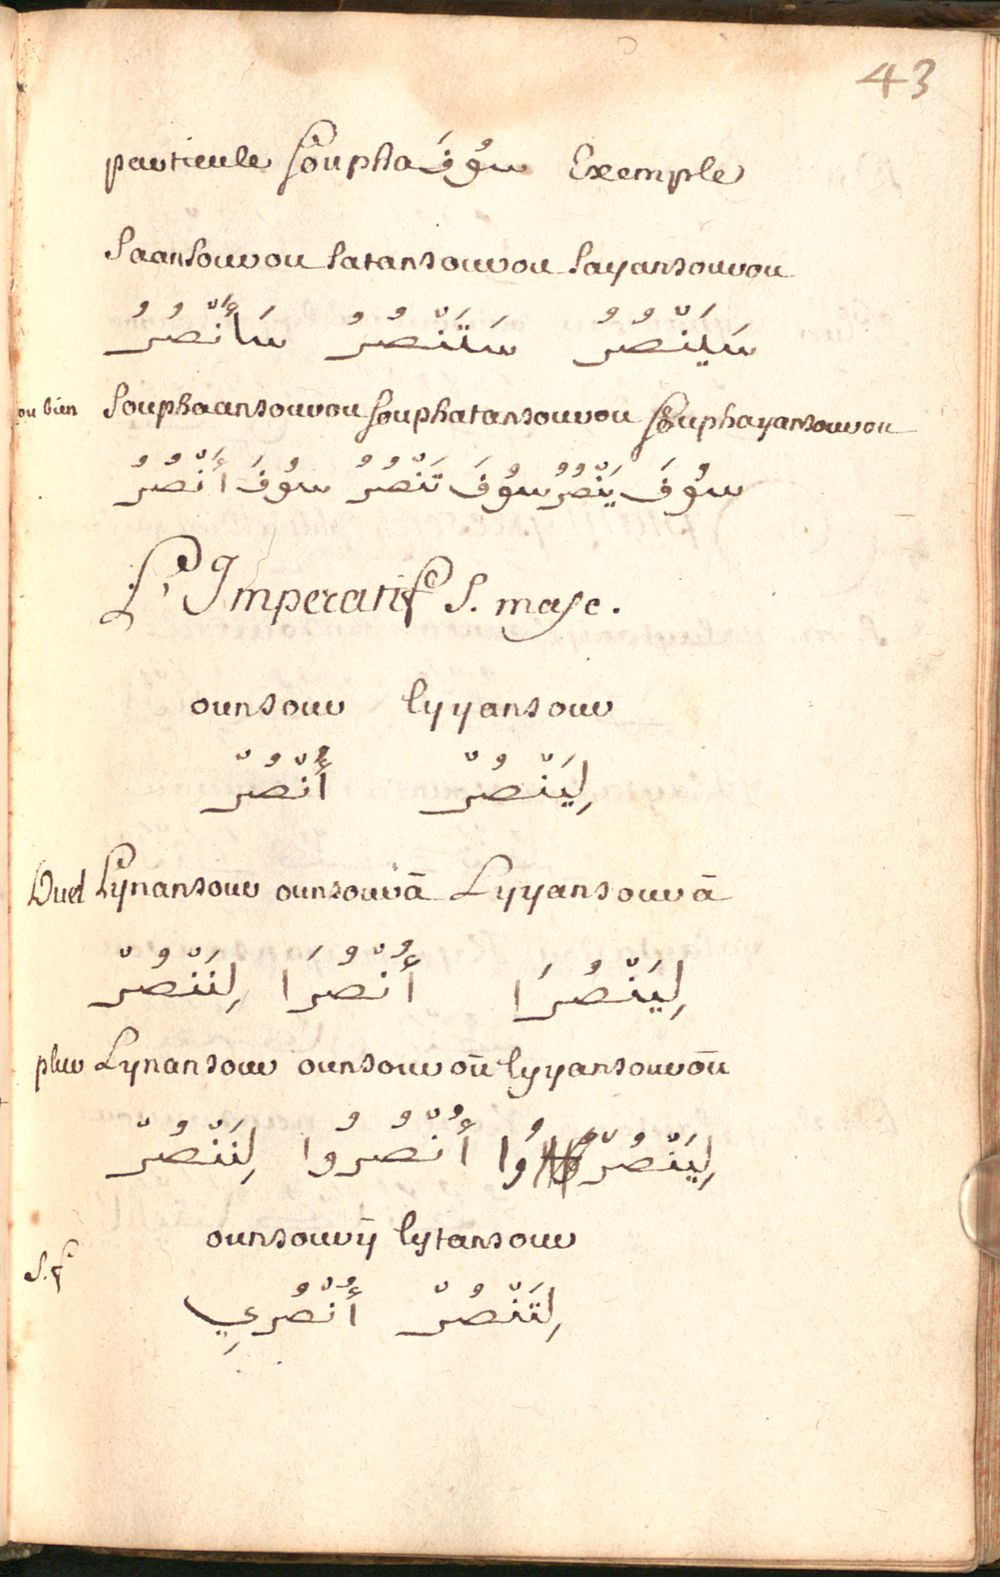 43
particule souphа سوُفَ Exemple
Saansourou satansourou sayansourou
سَأَنْصُرُ سَتَنْصُرُ سَيَنْصُرُ
ou bien souphaansourou souphatansourou souphayansourou
سوُفَ أَنْصُرُ سوُفَ تَنْصُرُ سوُفَ يَنْصُرُ
L'Imperatif S. masc.
ounsour lyyansour
أُنْصُرْ لِيَنْصُرْ
Duel Lynansour ounsourā Lyyansourā
لِنَنْصُرْ أُنْصُرَا لِيَنْصُرَا
plur Lynansour ounsouroū lyyansouroū
لِنَنْصُرْ أُنْصُرُوا لِيَنْصُرُوا
S. f ounsourÿ lytansour
أُنْصُرِي لِتَنْصُرْ